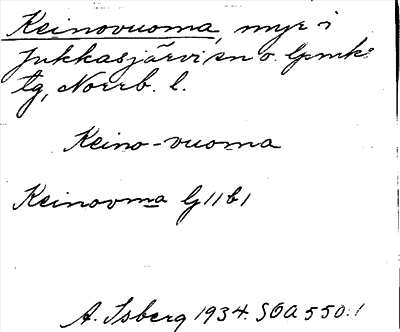 Keinovuoma, myr i
Jukkasjärvi sn o. lpmk:s
tg, Norrb. l.
Keino-vuoma
Keinovma Gj11b1
A. Isberg 1934. SOA 550:1